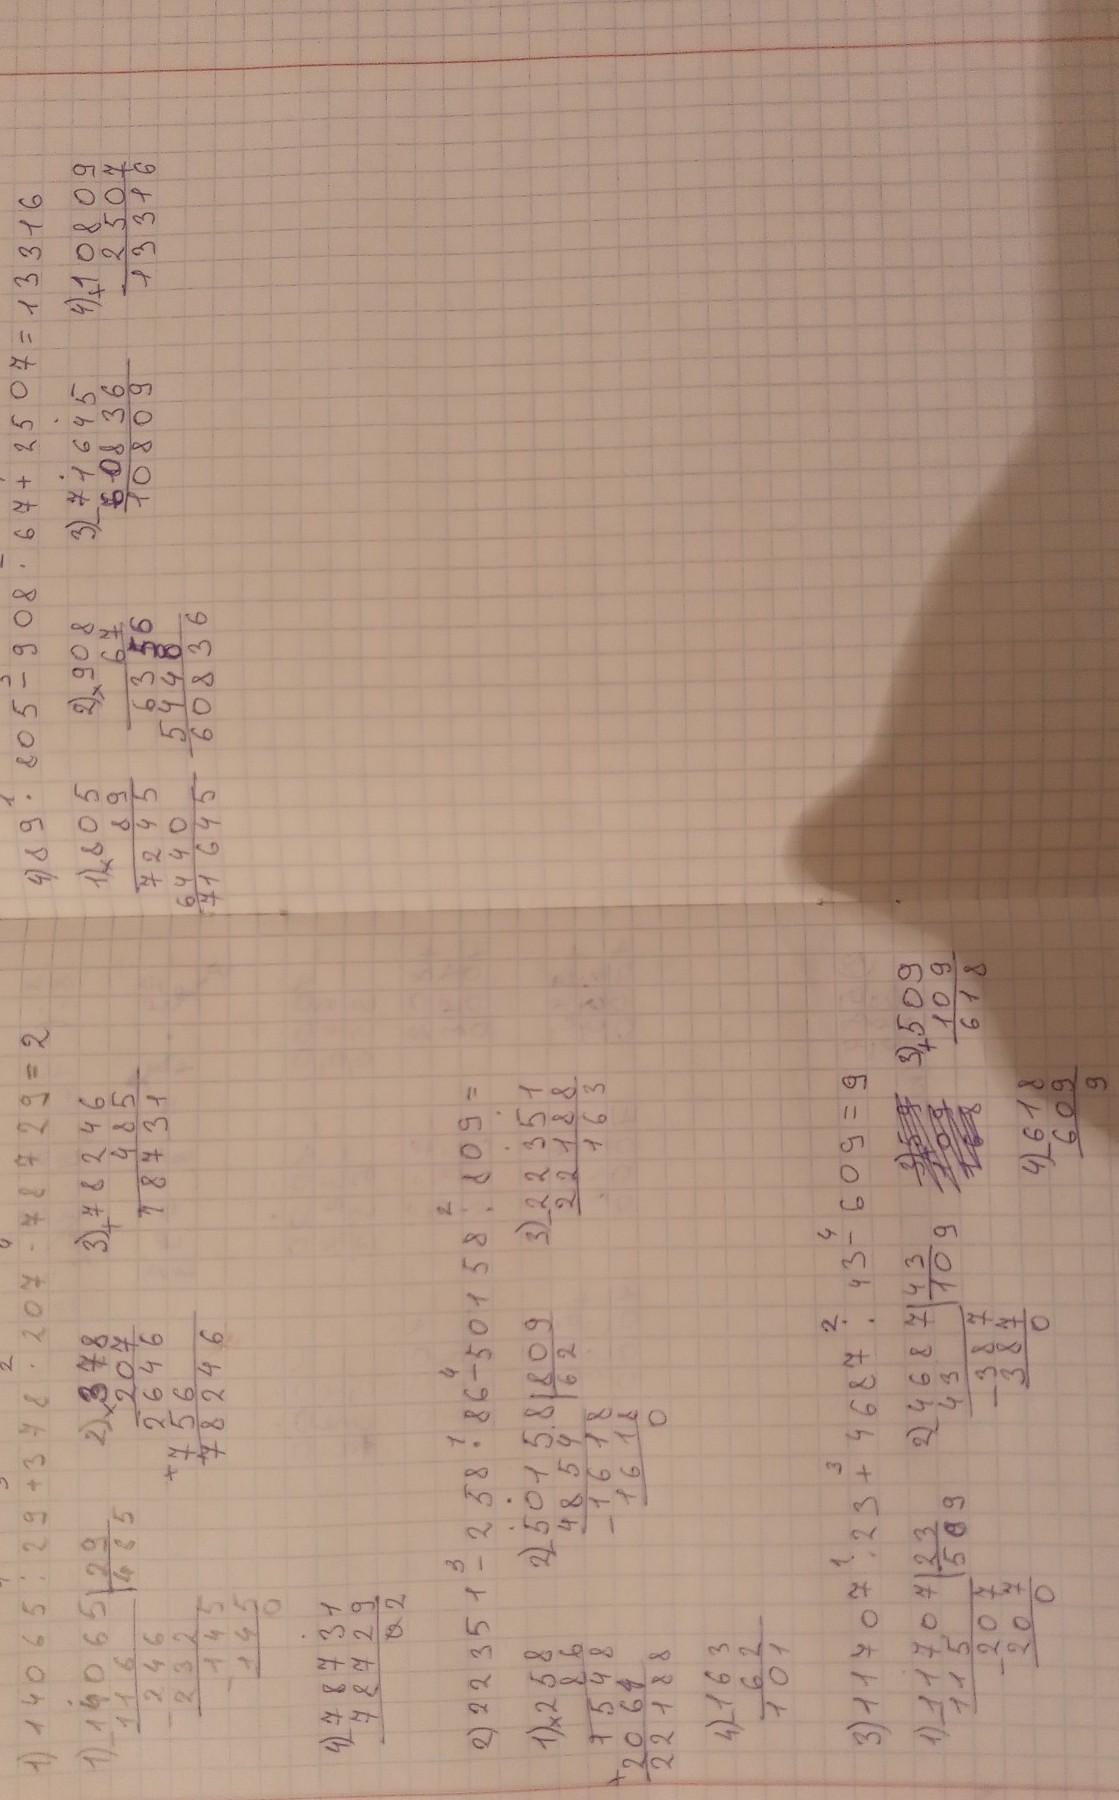 1) 14065 : 29 + 378 · 207 - 78729 = 2
1) 14065 | 29
116 | 485
246
232
145
145
0
2) × 378
207
2646
+ 756
78246
3) + 78246
485
78731
4) - 78731
78729
2
2) 22351 - 258 · 86 - 50158 : 809 =
1) × 258
86
1548
+ 2064
22188
2) - 50158 | 809
4854 | 62
- 1618
1618
0
3) - 22351
22188
163
4) - 163
62
101
3) 11707 : 23 + 4687 : 43 - 609 = 9
1) - 11707 | 23
115 | 509
- 207
207
0
2) - 4687 | 43
43 | 109
- 387
387
0
3) + 509
109
618
4) - 618
609
9
4) 89 · 805 - 908 · 67 + 2507 = 13316
1) × 805
89
7245
6440
71645
2) × 908
67
6356
5448
60836
3) - 71645
60836
10809
4) + 10809
2507
13316